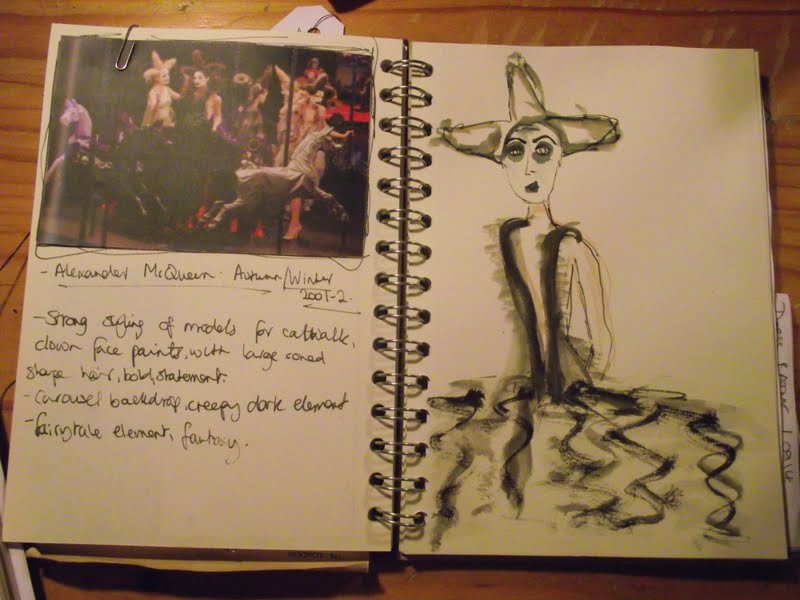 - Alexander McQueen: Autumn/Winter
2001-2.
- Strong styling of models for catwalk,
clown face paints, with large coned
shape hair, bold, statement.
- Carousel backdrop, creepy dark element
- fairytale element, fantasy.